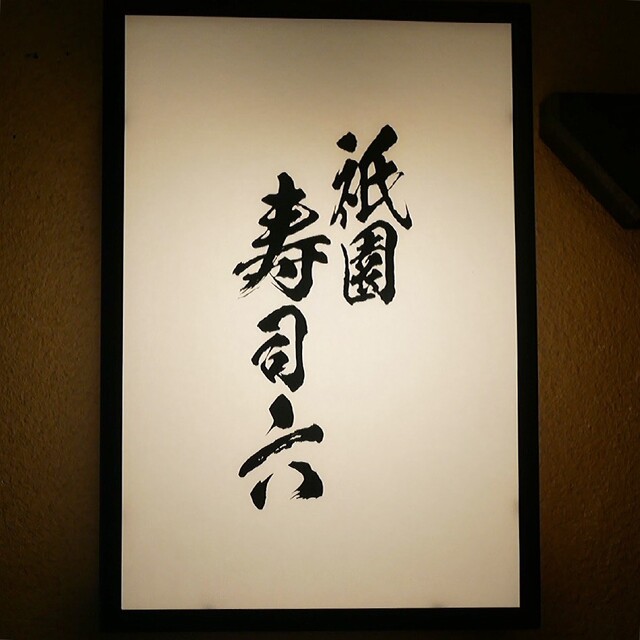 祇園
寿司六